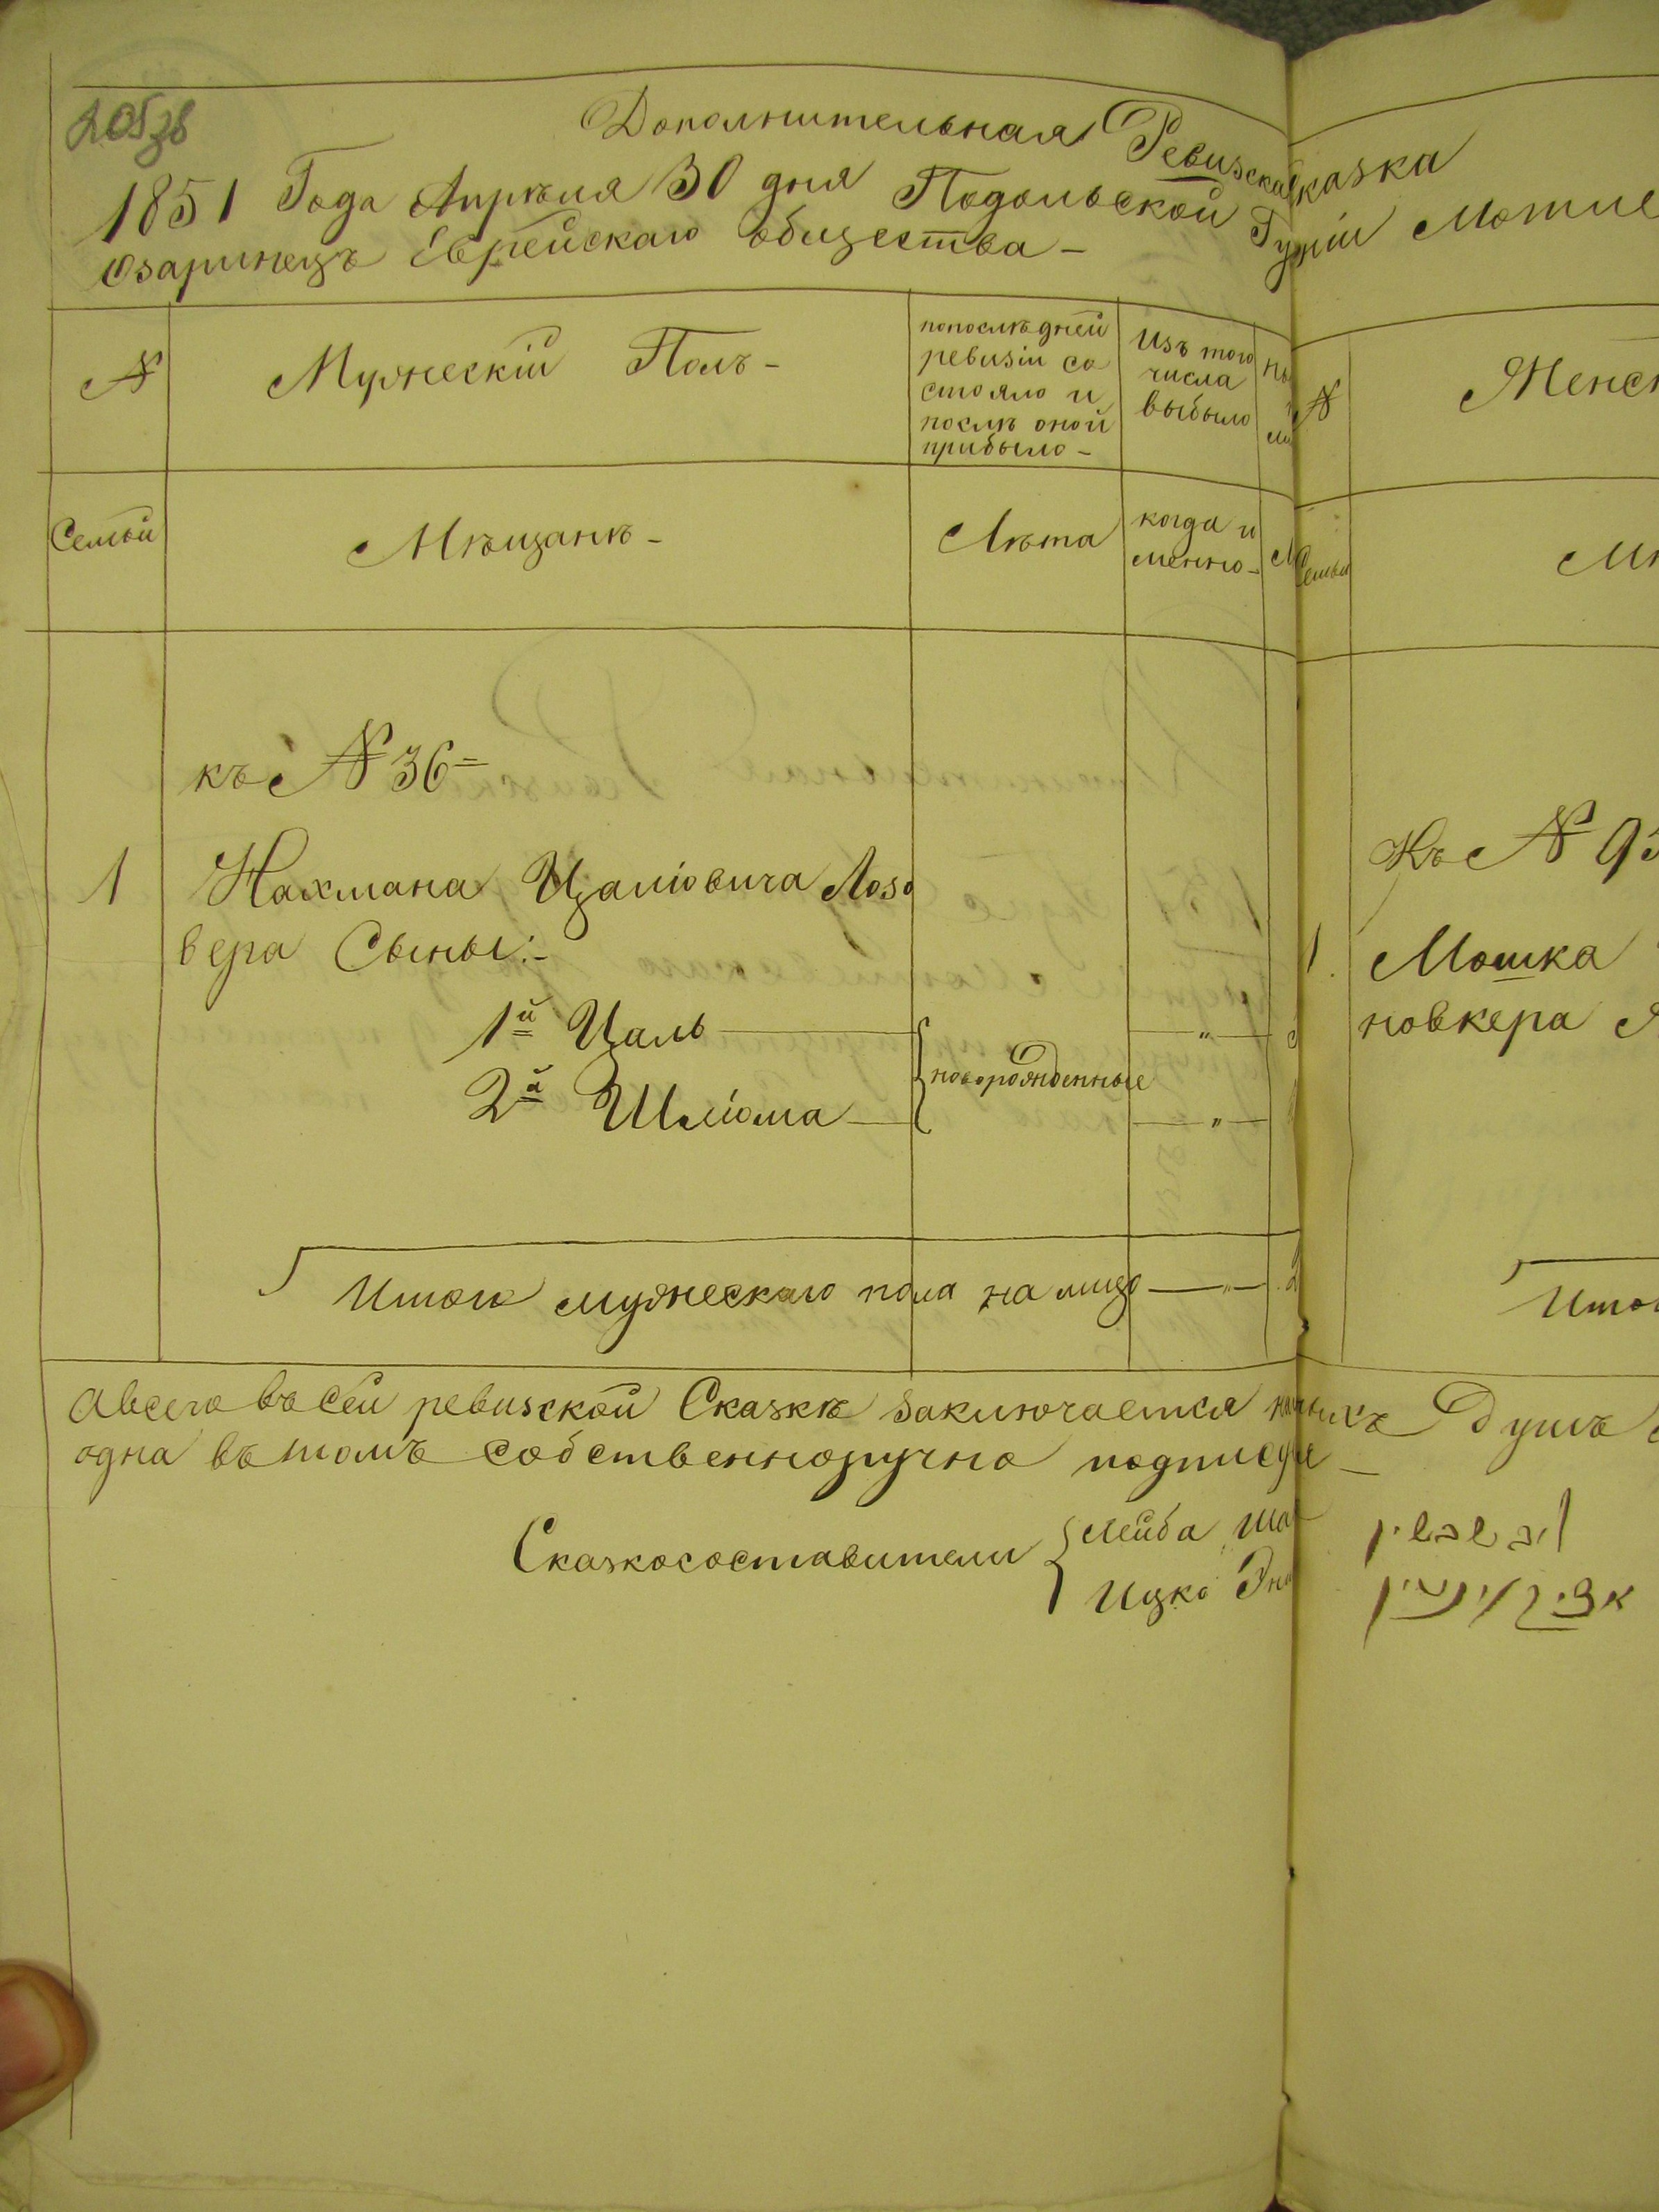 Дополнительная Ревизская сказка
1851 Года Апрѣля 30 дня Подольской Губернiи Могиле
Озаринецъ Еврейскаго общества –
№
Мужескiй Полъ –
попослѣдней
ревизiи со
стояло и
послѣ оной
прибыло –
Изъ того
числа
выбыло
№
Женск
Семьи
Мѣщанѣ –
Лѣта
когда и
менно –
Семьи
къ № 36 =
1 Нахмана Цалiовича Лозо
вера Сыны: –
1й Цаль
2й Шлiома
новорожденные
Къ № 93
1. Мошка
новкера
Итого мужескаго пола на лицо
Итого
Авсего въ сей ревизской Сказкѣ заключается душъ
одна въ томъ собственноручно подписуя –
Сказкосоставители
Лейба
Ицко